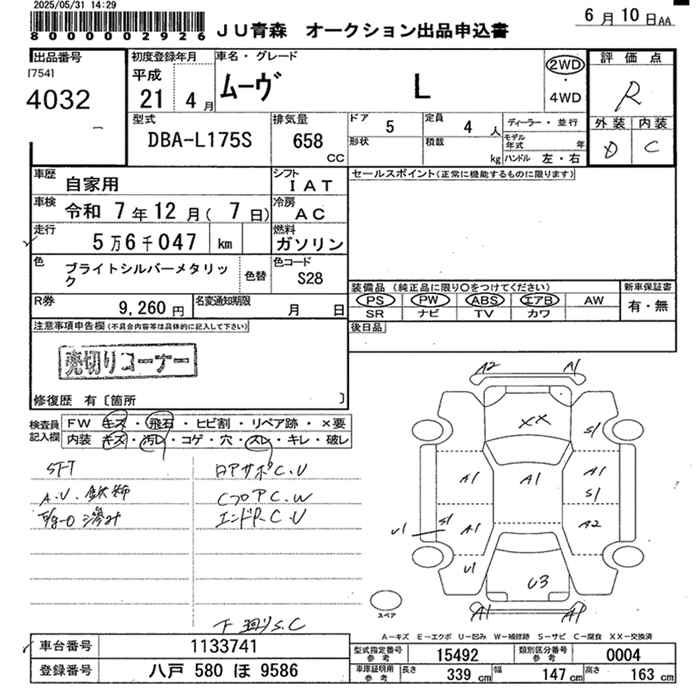 2025/05/31 14:29
800000002926
JU青森 オークション出品申込書
6月10日AA
出品番号
[754]
4032
初度登録年月
平成
21 4月
車名・グレード
ムーヴ L
2WD
・
4WD
評価点
R
外装 内装
D C
型式
DBA-L175S
排気量
658 CC
ドア 5
定員 4人
形状
積載 kg
ディーラー・並行
モデル年式 年
ハンドル 左・右
車歴
自家用
シフト
IAT
セールスポイント(正常に機能するものに限ります)
車検
令和 7年12月(7日)
冷房
AC
走行
5万6千047 km
燃料
ガソリン
色
ブライトシルバーメタリック
色替
色コード
S28
装備品 (純正品に限り○をつけてください)
PS PW ABS エアB AW
SR ナビ TV カワ
新車保証書
有・無
R券
9,260円
名変通知期限
月 日
後日品
注意事項申告欄(不具合内容等は具体的に記入して下さい)
売切りコーナー
修復歴 有〔箇所 〕
検査員記入欄
FW キズ・飛石・ヒビ割・リペア跡・×要
内装 キズ・汚レ・コゲ・穴・スレ・キレ・破レ
A2 A1
XX
S1
A1 A1 A1
S1
U1 S1 A1 A2
U1
U3
A1 A1
スペア
ロアサポC.U
CフロアC.W
エンドP.C.U
下廻りS.C
A-キズ E-エクボ U-凹み W-補修跡 S-サビ C-腐食 XX-交換済
車台番号
1133741
登録番号
八戸 580 ほ 9586
型式指定番号
参考
15492
類別区分番号
参考
0004
車庫証明用
参考
長さ 339 cm
幅 147 cm
高さ 163 cm